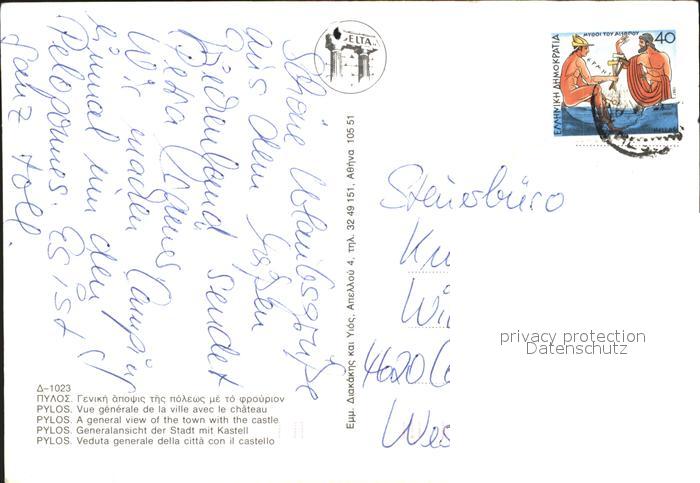 Schöne Urlaubsgrüße
aus dem heißen
Griechenland sendet
Petra
Wir machen Camping
einmal um den
Peloponnes. Es ist
ganz toll.
DELTA
ΕΛΛΗΝΙΚΗ ΔΗΜΟΚΡΑΤΙΑ
ΜΥΘΟΙ ΤΟΥ ΑΙΣΩΠΟΥ
40
HELLAS
Εμμ. Διακάκης και Υιός, Απελλού 4, τηλ. 32 49 151, Αθήνα 105 51
Steuerbüro
4620
Wes
privacy protection
Datenschutz
Δ–1023
ΠΥΛΟΣ. Γενική ἄποψις τῆς πόλεως μέ τό φρούριον
PYLOS. Vue générale de la ville avec le château
PYLOS. A general view of the town with the castle
PYLOS. Generalansicht der Stadt mit Kastell
PYLOS. Veduta generale della città con il castello